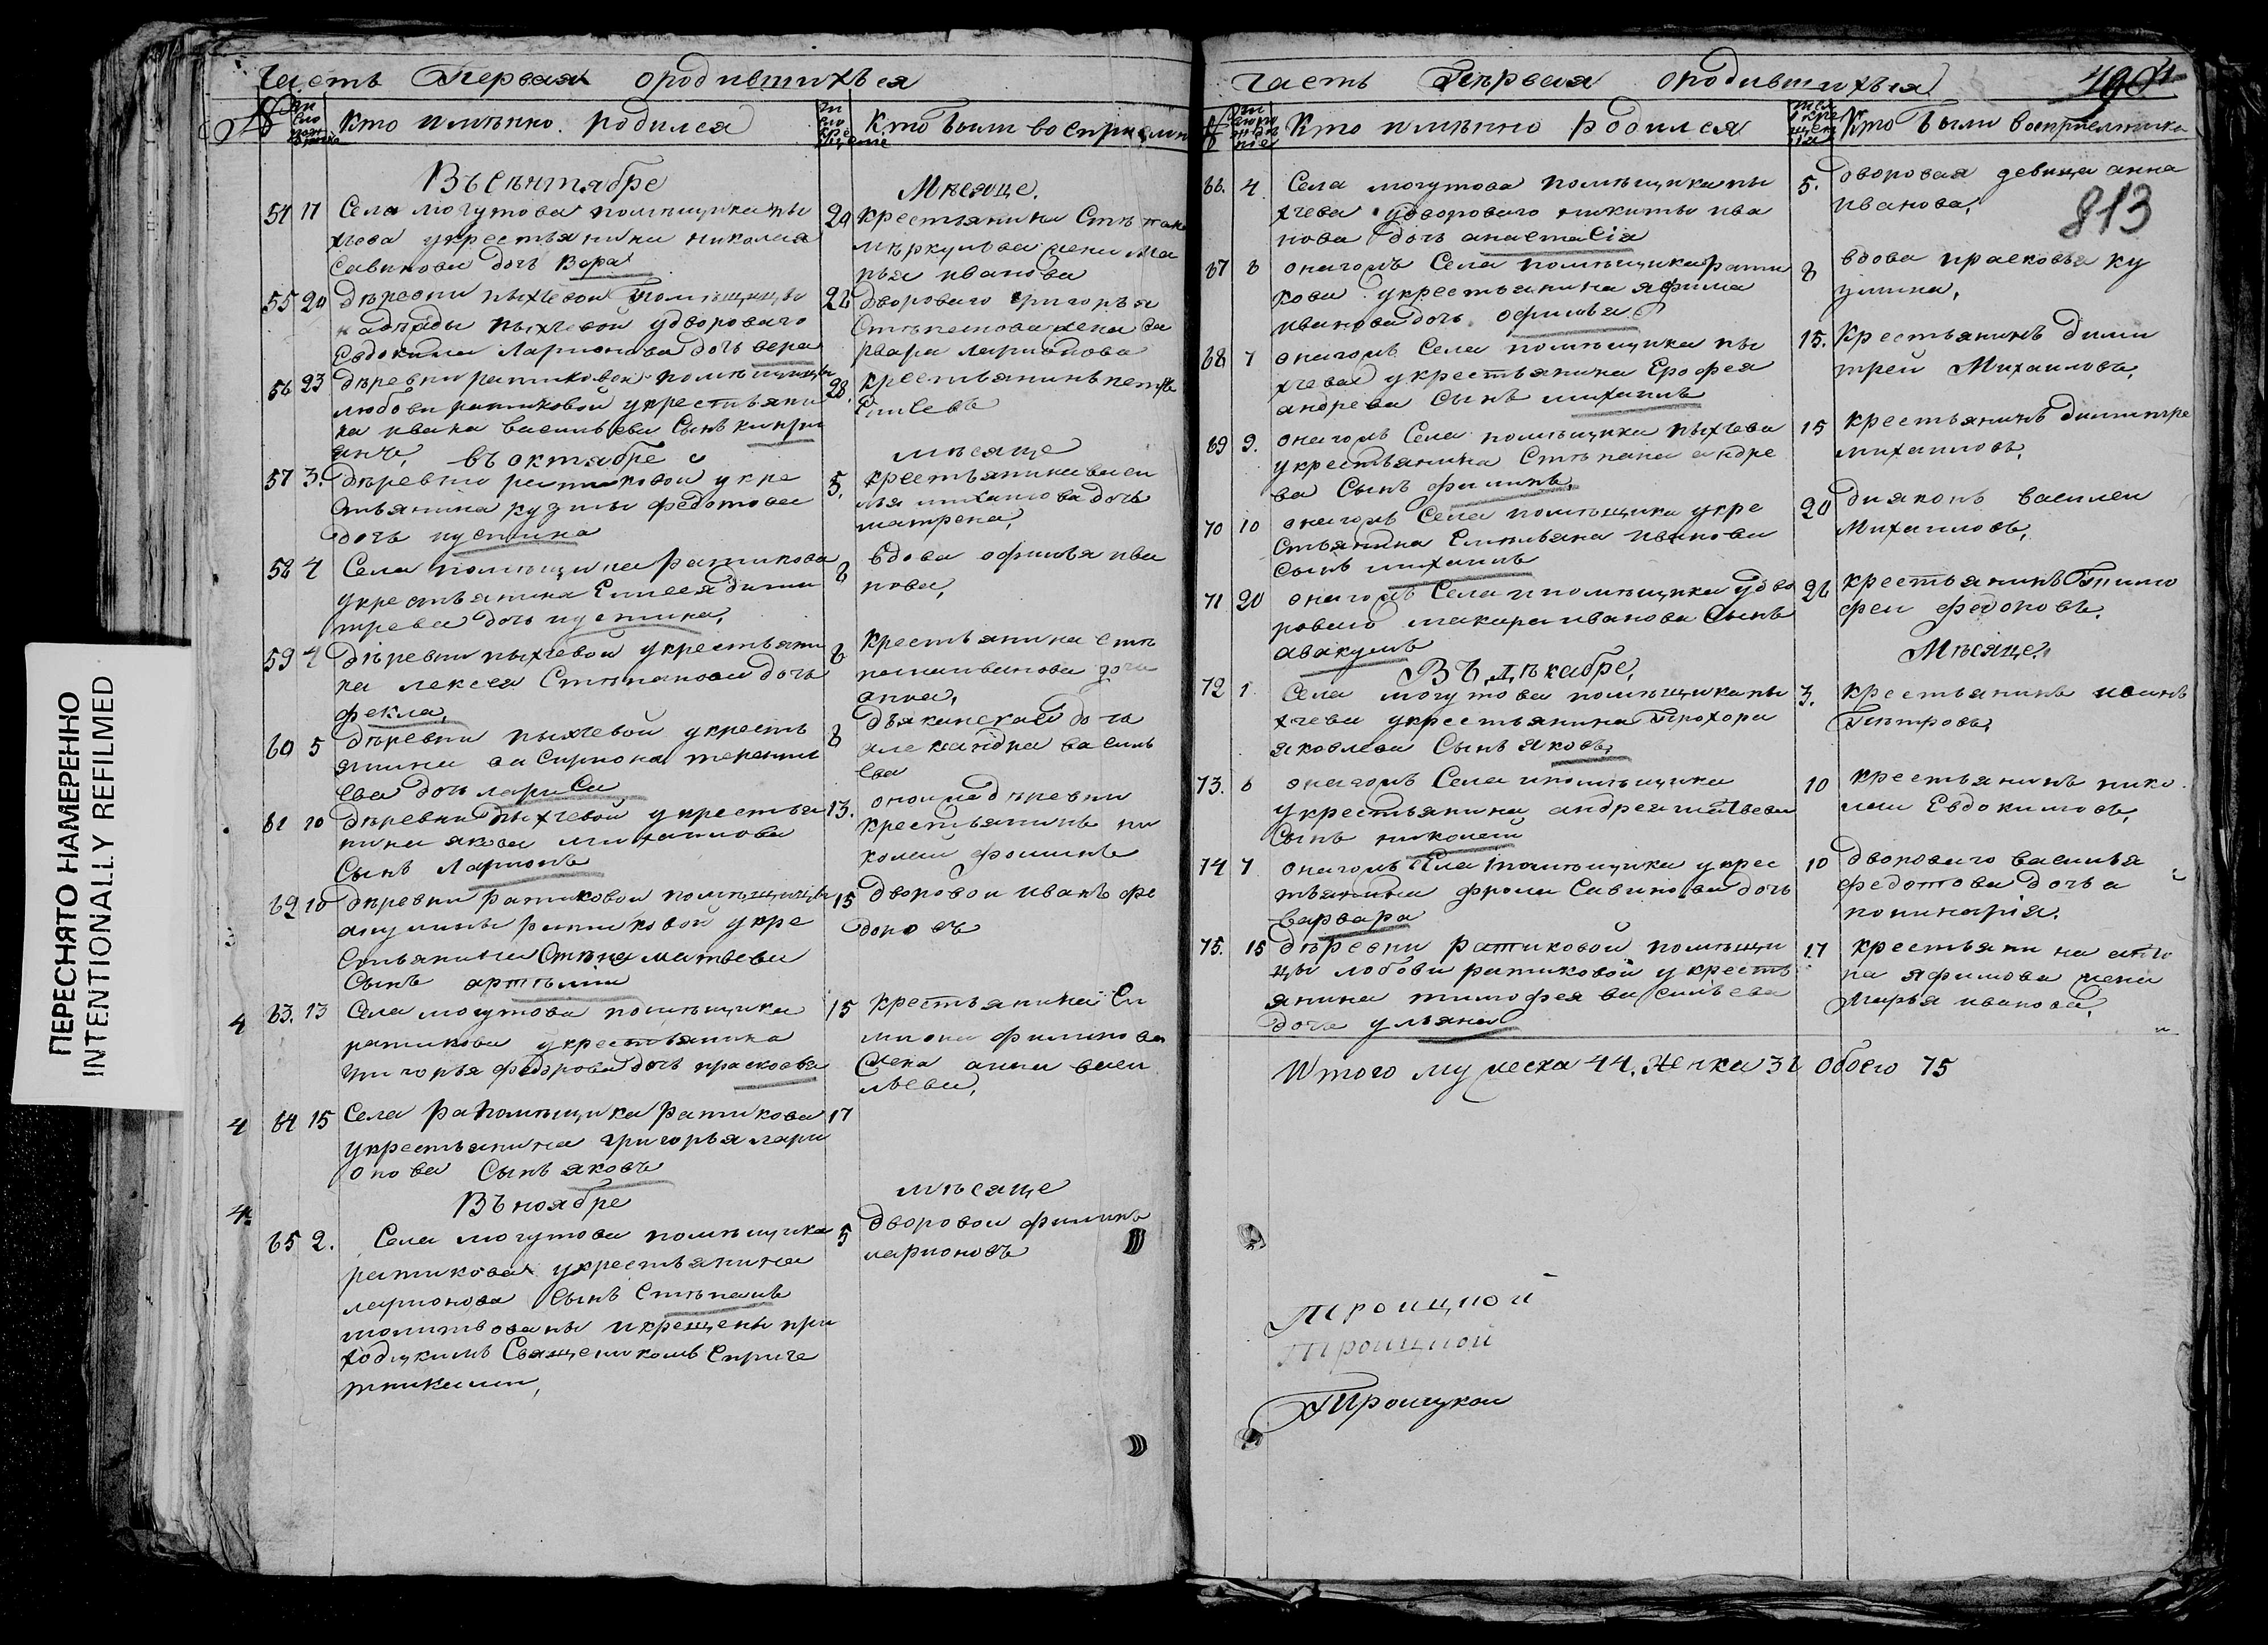 Часть Первая ородившихъся
№
Кто имѣнно родился
Кто были восприемн
Въ Сѣнтябре
Мѣсяце.
54 17 Села могутова помѣщика пы
хчева укрестьянина николая
Савинова дочь Вера
20 крестьянина Стѣпана
мѣркулова жена Ма
рья иванова
55 20 Дѣревни пыхчевой Помѣщицы
надѣжды пыхчевой удворового
Евдокима Ларионова дочь вера
22 дворового григорья
Стѣпанова жена ва
рвара ларионова
56 23 дѣревни ратиковой помѣщицы
любови ратиковой укрестьяни
на ивана васильева Сынъ кипри
янъ,
28. крестьянинъ петръ
Елисевъ
въ октябре
мѣсяце
57 3. дѣревни ратиковой укре
стьянина кузмы федотова
дочь устина
5. крестьянина васи
лья михаилова дочь
матрена,
58 4 Села помѣщика ратикова
укрестьянина Елисея дими
трева дочь устина,
8 вдова офимья ива
нова,
59 4 дѣревни пыхчевой укрестьяни
на лексея Стѣпанова дочь
фекла,
8 крестьянина стѣ
пана иванова дочь
анна,
60 5 дѣревни пыхчевой укресть
янина
ева дочь лариса
8 дьяканская дочь
александра василь
ева
61 10 дѣревни Пыхчевой укрестья
нина якова михаилова
Сынъ Ларионъ
13. оной же дѣревни
крестьянинъ ни
колай фоминъ
62 10 дѣревни ратиковой помѣщицы
акулины ратиковой укре
стьянина матвеева
Сынъ артемии
15 дворовои иванъ фе
доровъ
4 63. 13 Села могутова помѣщика
ратикова укрестьянина
григорья федорова дочь прасковья
15 крестьянина Си
миона филипова
жена анна васи
льева,
4 64 15 Села помѣщика ратикова
укрестьянина григорья лари
онова Сынъ яковъ
17
Въ ноябре
мѣсяце
4 65 2. Села могутова помѣщика
ратикова укрестьянина
ларионова Сынъ Стѣпанъ
молитвованы икрещены при
ходцкимъ Священикомъ Сприче
тникими,
5 дворовои филипъ
ларионовъ
ПЕРЕСНЯТО НАМЕРЕННО
INTENTIONALLY REFILMED
часть Пѣрвая ородившихъся
Кто имѣнно родился
Кто были восприемники
813
66. 4 Села могутова помѣщика пы
хчева удворового никиты ива
нова дочь анастасія
5. дворовая девица анна
иванова,
67 8 онагожъ Села помѣщика рати
кова укрестьянина яфима
иванова дочь офимья
8 вдова прасковья ку
змина,
68 7 онагожъ Села помѣщика пы
хчева укрестьянина Ерофея
андрева Сынъ михаилъ
15. Крестьянинъ дими
трей Михаиловъ,
69 9. онагожъ Села помѣщика пыхчева
укрестьянина Стѣпана андре
ва Сынъ филипъ,
15 крестьянинъ димитре
михаиловъ,
70 10 онагожъ Села помѣщика укре
стьянина Емельяна иванова
Сынъ михаилъ
20 диаконъ василеи
Михаиловъ,
71 20 онагожъ Села ипомѣщика удво
рового макара иванова Сынъ
авакумъ
26 крестьянинъ Тимо
феи федоровъ,
Въ дѣкабре,
Мѣсяце.
72 1. Села могутова помѣщика пы
хчева укрестьянина Прохора
яковлева Сынъ яковъ,
3. крестьянинъ иванъ
Пѣтровъ,
73. 6 онагожъ Села ипомѣщика
укрестьянина андрея матвева
Сынъ николай
10 крестьянинъ нико
лаи Евдокимовъ,
74 7 онагожъ Села помѣщика укрес
тьянина фрола Савинова дочь
варвара
10 дворового василья
федотова дочь а
полинарія.
75. 15 дѣревни ратиковой помѣщи
цы любови ратиковой укресть
янина тимофея васильева
дочь ульяна
17 крестьянина
яфимова жена
Марья иванова,
Итого мужеска 44. Женска 31 Обоего 75
Троицкой
Троицкой
Троицкои